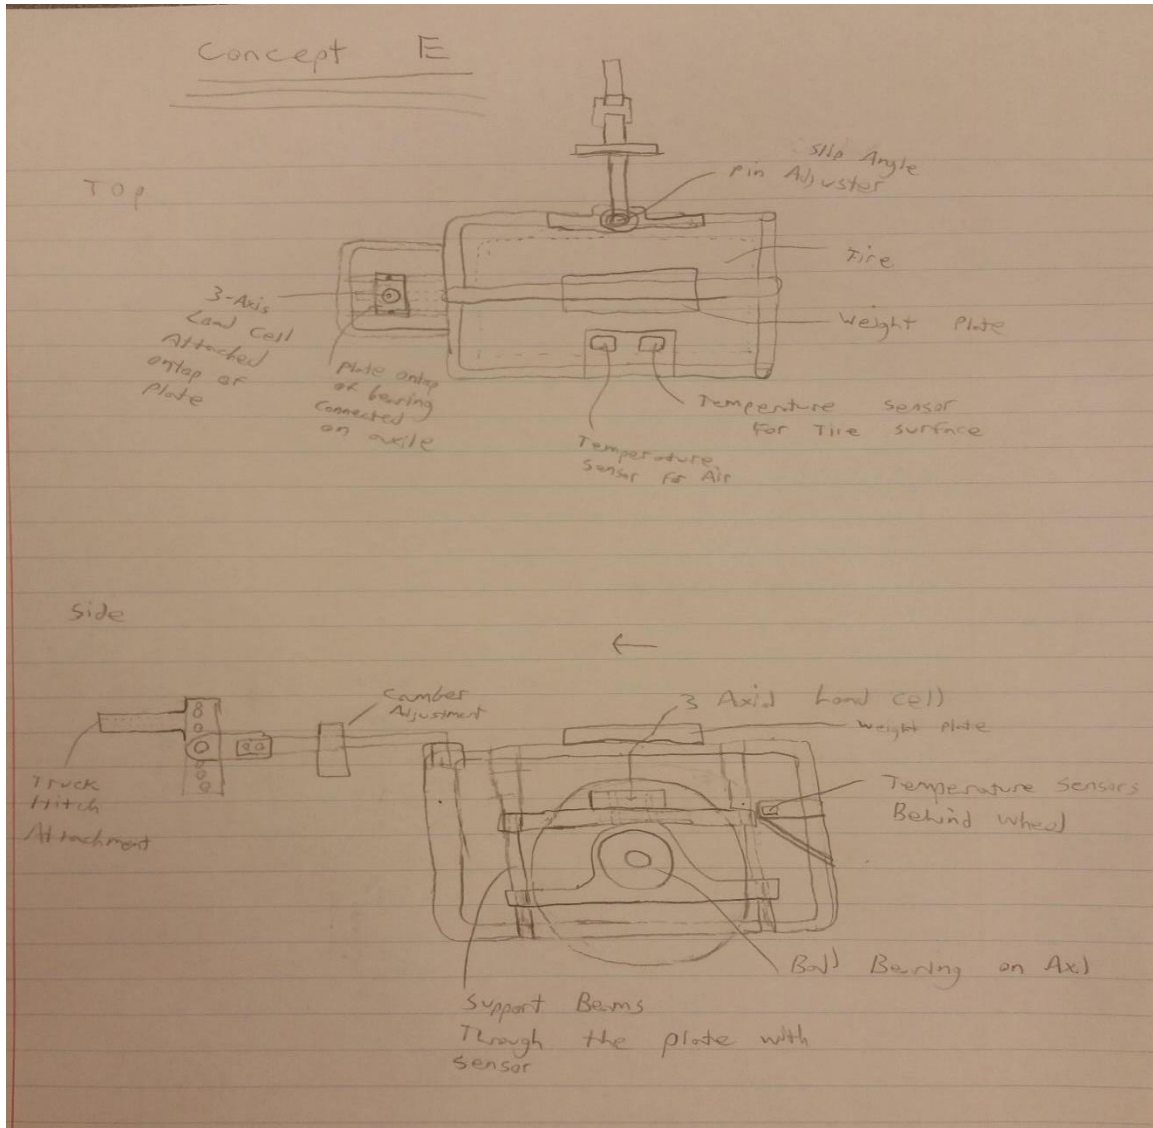 Concept E
Top
Slip Angle
Pin Adjuster
Tire
Weight Plate
3-Axis
Load Cell
Attached
ontop of
Plate
Plate ontop
of bearing
connected
on axile
Temperature Sensor
For Tire surface
Temperature
Sensor For Air
Side
Camber
Adjustment
3 Axid Load Cell
Weight Plate
Truck
Hitch
Attachment
Temperature Sensors
Behind Wheel
Ball Bearing on Axl
Support Beams
Through the plate with
Sensor